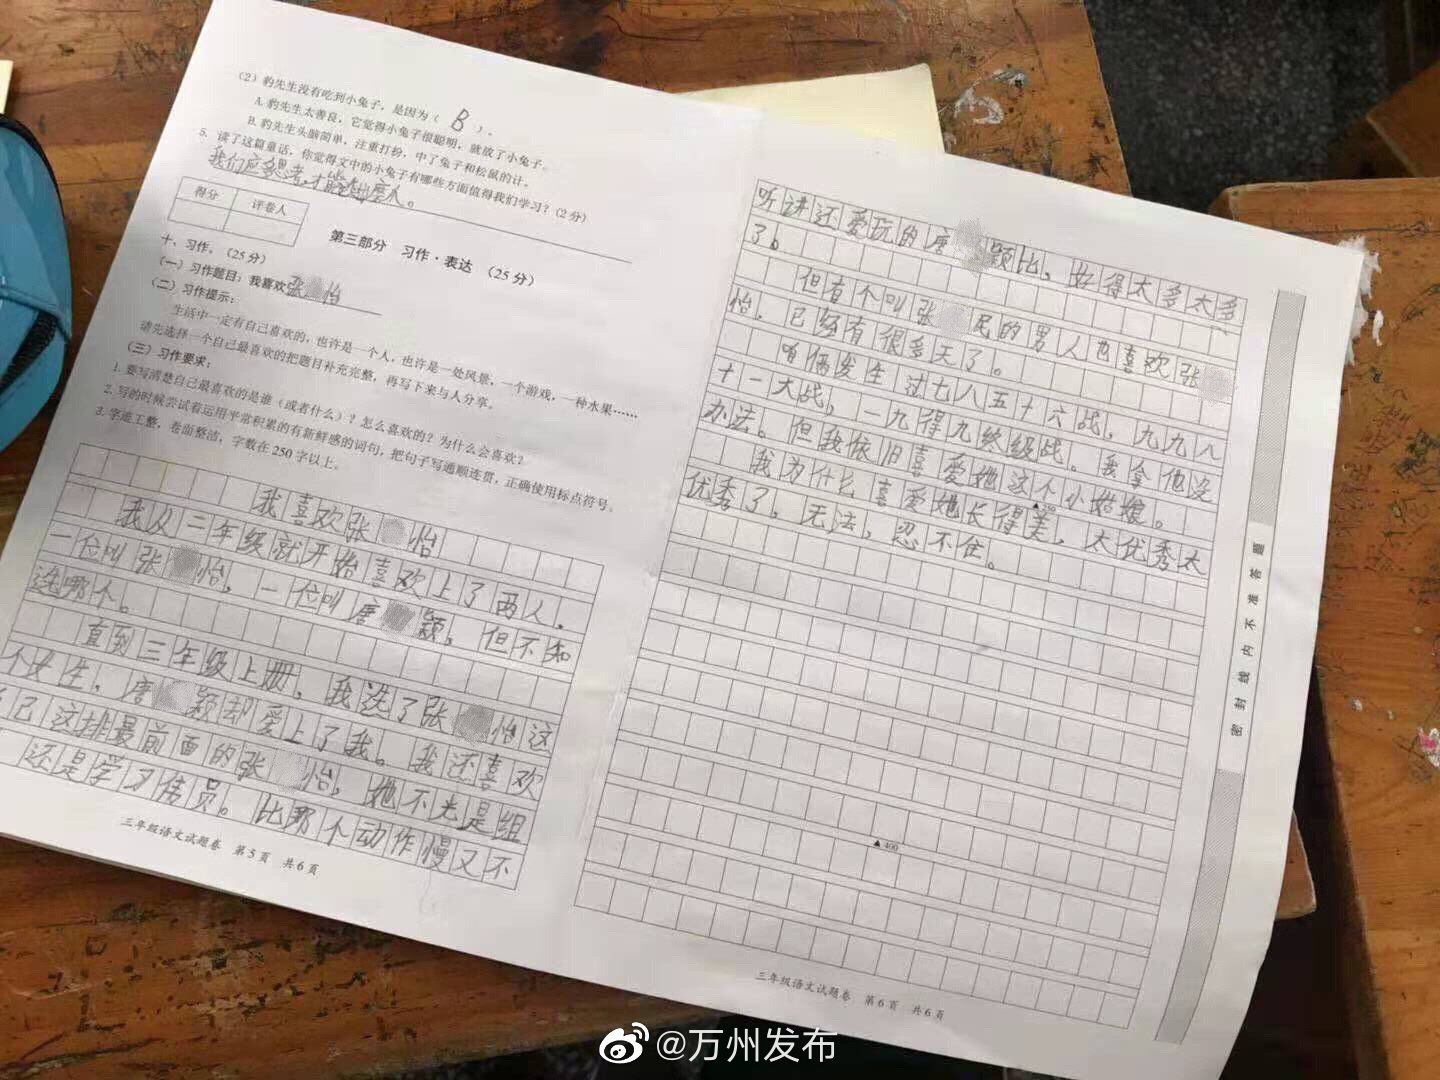 （2）豹先生没有吃到小兔子，是因为（ B ）。
A.豹先生太善良，它觉得小兔子很聪明，就放了小兔子。
B.豹先生头脑简单，注重打扮，中了兔子和松鼠的计。
5. 读了这篇童话，你觉得文中的小兔子有哪些方面值得我们学习？（2分）
我们应多思考，才能
得分 评卷人
第三部分 习作·表达 （25分）
十、习作。（25分）
（一）习作题目：我喜欢张怡
（二）习作提示：
生活中一定有自己喜欢的，也许是一个人，也许是一处风景，一个游戏，一种水果……
请先选择一个自己最喜欢的把题目补充完整，再写下来与人分享。
（三）习作要求：
1. 要写清楚自己最喜欢的是谁（或者什么）？怎么喜欢的？为什么会喜欢？
2. 写的时候尝试着运用平常积累的有新鲜感的词句，把句子写通顺连贯，正确使用标点符号。
3. 字迹工整，卷面整洁，字数在250字以上。
我喜欢张怡
我从二年级就开始喜欢上了两人，
一位叫张怡，一位叫唐颖，但不知
选哪个。
直到三年级上册，我选了张怡这
个女生，唐颖却爱上了我。我还喜欢
己这排最前面的张怡，她不光是组
还是学习委员。比那个动作慢又不
三年级语文试题卷 第5页 共6页
听讲还爱玩的唐颖比，好得太多太多
了。
但有个叫张民的男人也喜欢张
怡，已经有很多天了。
咱俩发生过七八五十六战，九九八
十一大战，一九得九终级战。我拿他没
办法。但我依旧喜爱她这个小姑娘。
▲250
我为什么喜爱她长得美，太优秀太
优秀了，无法，忍不住。
▲400
三年级语文试题卷 第6页 共6页
密封线内不准答题
@万州发布